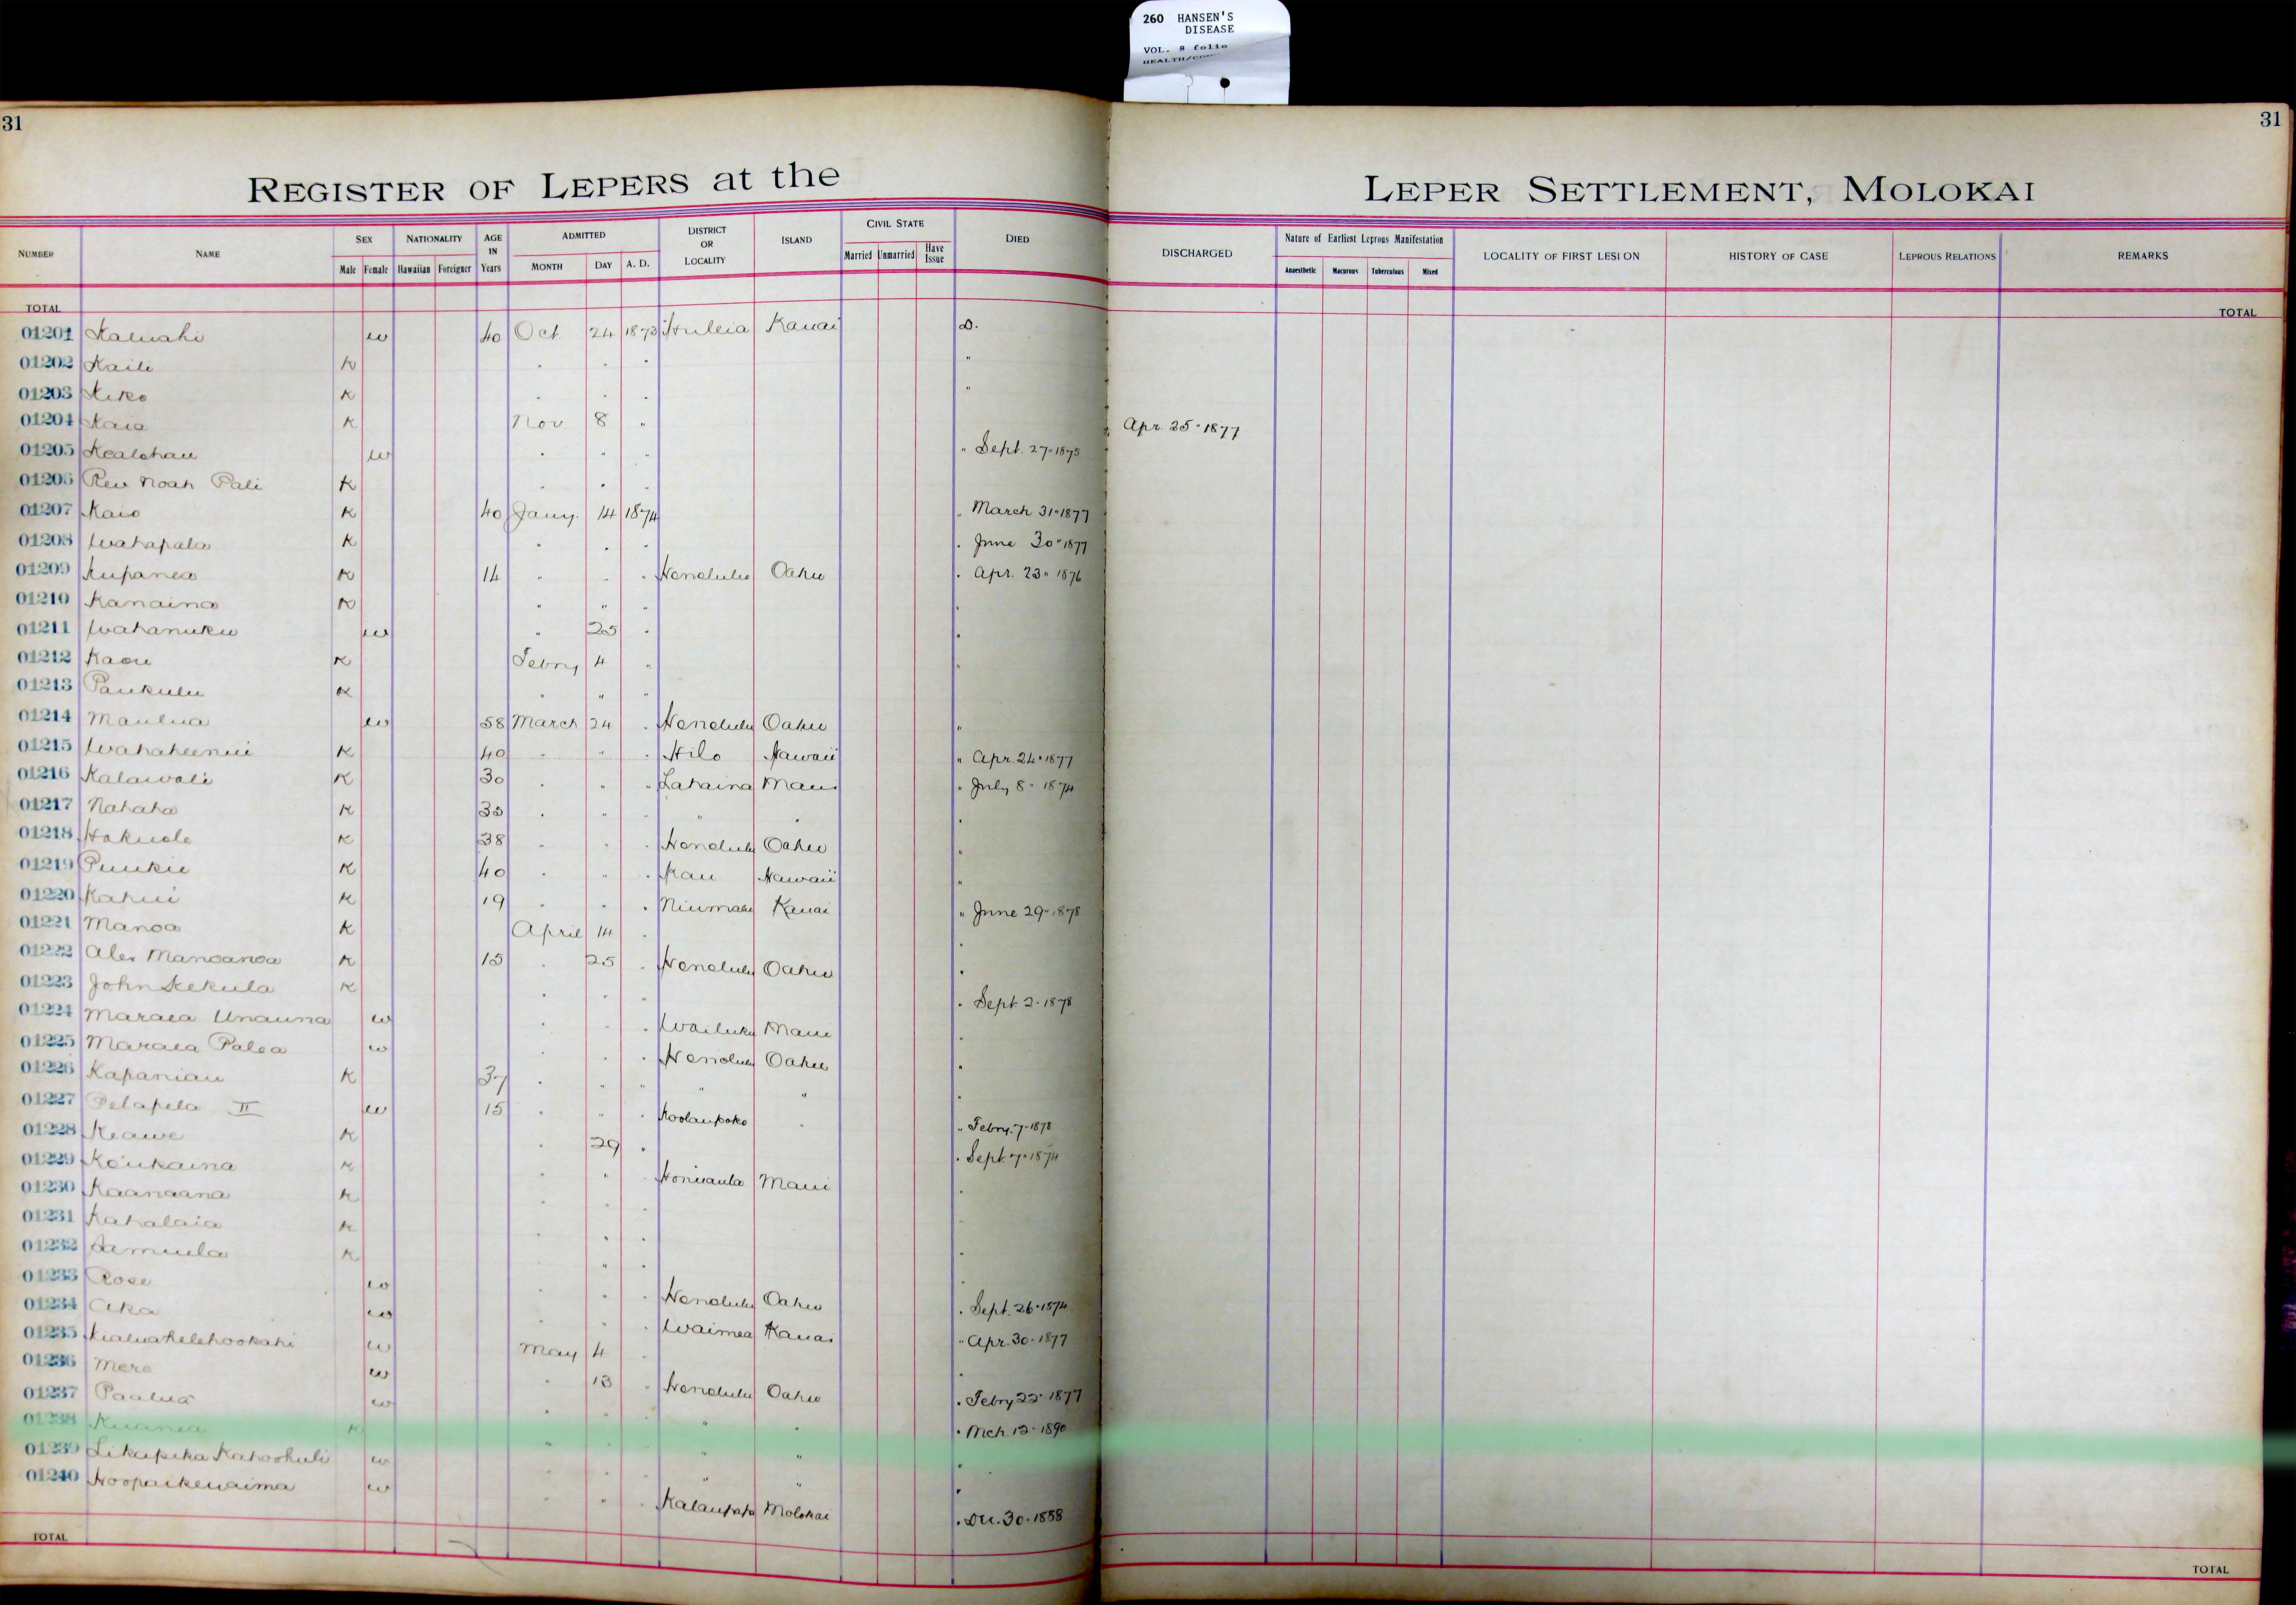 260 HANSEN'S
DISEASE
VOL. 8 folio
31
31
REGISTER OF LEPERS at the
LEPER SETTLEMENT, MOLOKAI
NUMBER NAME SEX Male Female NATIONALITY Hawaiian Foreigner AGE IN Years ADMITTED MONTH DAY A. D. DISTRICT OR LOCALITY ISLAND CIVIL STATE Married Unmarried Have Issue DIED DISCHARGED Nature of Earliest Leprous Manifestation Anaesthetic Macurous Tuberculous Mixed LOCALITY OF FIRST LESION HISTORY OF CASE LEPROUS RELATIONS REMARKS
TOTAL TOTAL
01201 Kaluahi w 40 Oct 24 1873 Huleia Kauai D.
01202 Kaili K " " " "
01203 Kiko K " " " "
01204 Kaia K Nov 8 " " Apr. 25" 1877
01205 Kealohau w " " " " Sept. 27" 1875
01206 Rev Noah Pali K " " "
01207 Kaio K 40 Jany. 14 1874 " March 31" 1877
01208 Wahapala K " " " " June 30" 1877
01209 Kupanea K 14 " " " Honolulu Oahu " Apr. 23" 1876
01210 Kanaina K " " " "
01211 Wahanuku w " 25 " "
01212 Kaou K Febry 4 " "
01213 Paukulu K " " "
01214 Maulua w 58 March 24 " Honolulu Oahu "
01215 Wahaheenui K 40 " " " Hilo Hawaii " Apr. 24" 1877
01216 Kalawali K 30 " " " Lahaina Maui " July 8" 1874
01217 Nahaha K 35 " " " " " "
01218 Hokuole K 38 " " " Honolulu Oahu "
01219 Puukii K 40 " " " Kau Hawaii "
01220 Kahui K 19 " " " Niumalu Kauai " June 29" 1878
01221 Manoa K April 14 " "
01222 Alex Manoanoa K 15 " 25 " Honolulu Oahu "
01223 John Kekula K " " " " Sept. 2" 1878
01224 Maraea Unauna w " " " Wailuku Maui "
01225 Maraea Palea w " " " Honolulu Oahu "
01226 Kapaniau K 37 " " " " " "
01227 Pelapela II w 15 " " " Koolaupoko " " Febry. 7" 1878
01228 Keawe K " 29 " " Sept. 7" 1874
01229 Keukaina K " " " Honuaula Maui "
01230 Kaanaana K " " "
01231 Kahalaia K " " " "
01232 Samuela K " " "
01233 Rose w " " " Honolulu Oahu " Sept. 26" 1874
01234 Aka w " " " Waimea Kauai " Apr. 30" 1877
01235 w May 4 " "
01236 Mere w " 13 " Honolulu Oahu " Febry 22" 1877
01237 Paalua w " " " " " " Mch. 12" 1890
01238 Kuanea K " " " " " "
01239 Likapeka Kahoohuli w " " " " " "
01240 Hoopaikewaima w " " " Kalaupapa Molokai " Dec. 30" 1888
TOTAL TOTAL